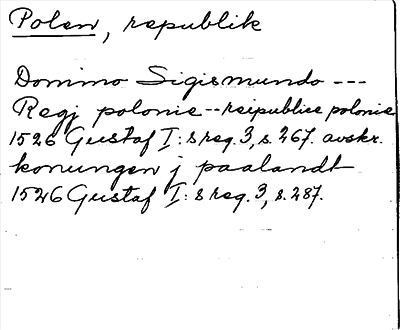 Polen, republik
Domino Sigismundo ---
Regj polonie -- reipublice polonie
1526 Gustaf I: s reg. 3, s. 267. avskr.
konungen j paalandt
1526 Gustaf I: s reg. 3, s. 287.